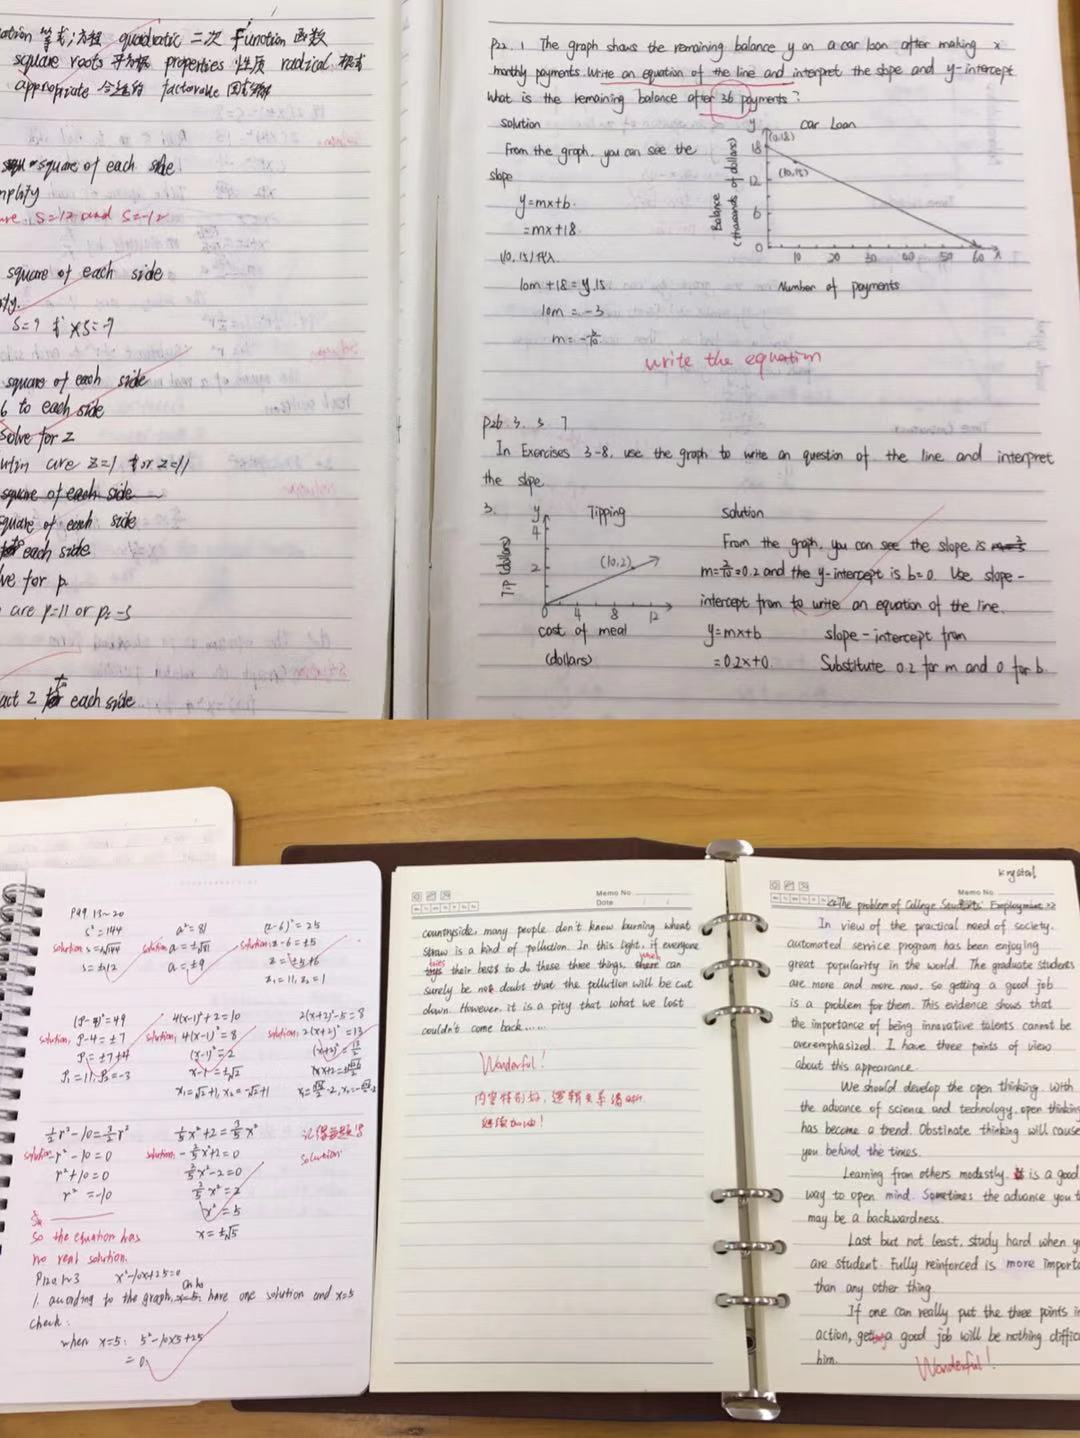 等式;方程 quadratic 二次 function 函数
square roots 平方根 properties 性质 radical 根式
appropriate 合适的 factorable
square of each side
S=12 and S=-12
square of each side
S=9 或 S=-9
square of each side
6 to each side
Solve for z
are z=1 or z=11
square of each side
square of each side
each side
ve for p.
are p=11 or p=-3
act 2 each side
P22. 1 The graph shows the remaining balance y on a car loan after making x
monthly payments. Write an equation of the line and interpret the slope and y-intercept
What is the remaining balance after 36 payments?
solution
From the graph, you can see the
slope
y=mx+b.
=mx+18
10m+18=y.15
10m=-3
m=-3/10
y
Car Loan
(0,18)
(10,15)
Balance
(thousands of dollars)
18
12
6
0
10 20 30 40 50 60 x
Number of payments
write the equation
P26 3. 5 7
In Exercises 3-8, use the graph to write an question of the line and interpret
the slpe.
3.
y
Tipping
4
2
(10,2)
Tip (dollars)
0 4 8 12
cost of meal
(dollars)
solution
From the graph, you can see the slope is
m=2/10=0.2 and the y-intercept is b=0. Use slope-
intercept from to write an equation of the line.
y=mx+b slope-intercept from
=0.2x+0. Substitute 0.2 for m and 0 for b.
P49 13~20
s²=144
solution s=±√144
s=±12
a²=81
solution a=±√81
a=±9
(z-6)²=25
solution: z-6=±5
z=±5+6
z₁=11, z₂=1
(P-4)²=49
solution: P-4=±7
P=±7+4
P₁=11, P₂=-3
4(x-1)²+2=10
solution: 4(x-1)²=8
(x-1)²=2
x-1=±√2
x₁=√2+1, x₂=-√2+1
2(x+2)²-5=8
solution: 2(x+2)²=13
(x+2)²=13/2
1/2r²-10=3/2r²
solution -r²-10=0
r²+10=0
r²=-10
So the equation has
no real solution.
1/5x²+2=3/5x²
solution: -2/5x²+2=0
2/5x²-2=0
2/5x²=2
x²=5
x=±√5
solution:
x²-10x+25=0
1. acording to the graph, have one solution and x=5
check:
when x=5: 5²-10×5+25
=0
Memo No.
Date
countryside, many people don't know burning wheat
straw is a kind of pollution. In this light, if everyone
tries their bests to do these three things, which can
surely be not doubt that the pollution will be cut
down. However, it is a pity that what we lost
couldn't come back......
Wonderful!
内容特别好, 逻辑关系清晰.
继续加油!
Krystal
Memo No.
<<The problem of College Students' Employment>>
In view of the practical need of society.
automated service program has been enjoying
great popularity in the world. The graduate students
are more and more now, so getting a good job
is a problem for them. This evidence shows that
the importance of being innovative talents cannot be
overemphasized. I have three points of view
about this appearance.
We should develop the open thinking. With
the advance of science and technology, open thinking
has become a trend. Obstinate thinking will cause
you behind the times.
Learning from others modestly. is a good
way to open mind. Sometimes the advance you t
may be a backwardness.
Last but not least, study hard when y
are student. Fully reinforced is more importa
than any other thing.
If one can really put the three points in
action, get a good job will be nothing diffic
him.
Wonderful!